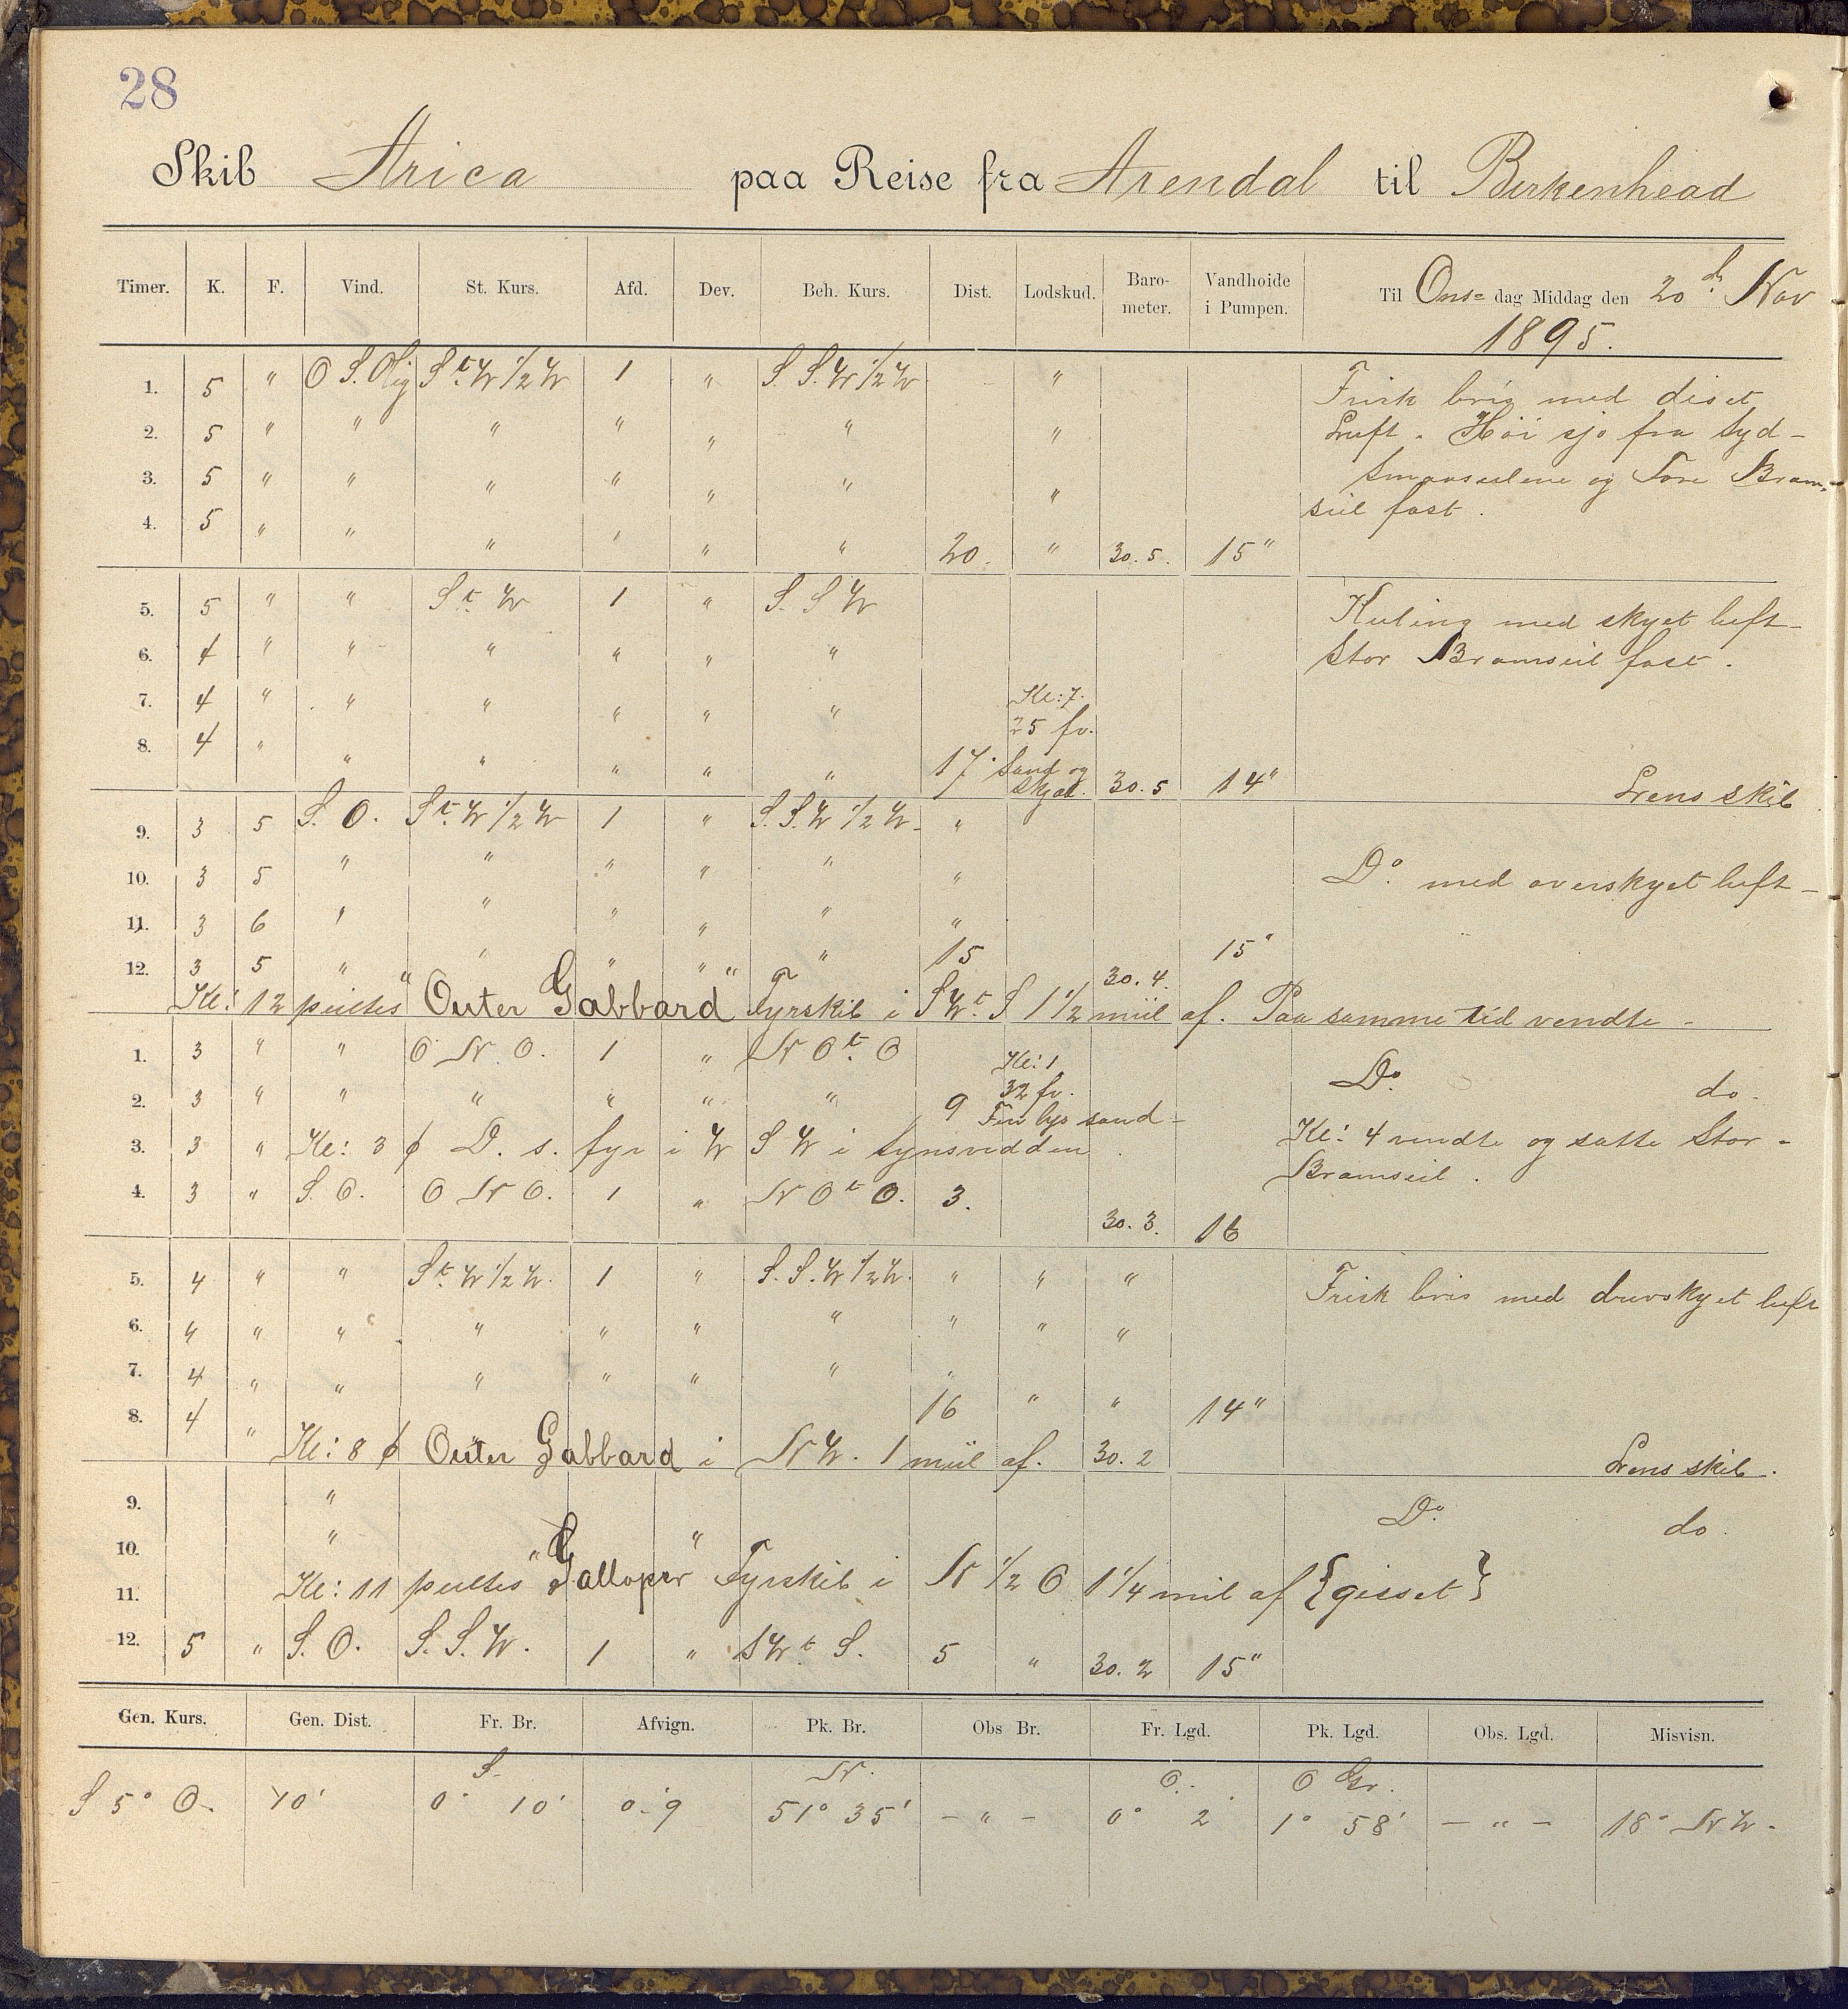 28
Skib Arica paa Reise fra Arendal til Birkenhead
Timer. K. F. Vind. St. Kurs. Afd. Dev. Beh. Kurs. Dist. Lodskud. Baro-meter. Vandhoide i Pumpen. Til Ons= dag Middag den 20de Nov
1895.
1. 5 " O S. Olig St. W 1/2 W 1 " S. S. W 1/2 W " Frisk bris med diset
2. 5 " " " " " " " Luft. Höi sjø fra Syd-
3. 5 " " " " " " " Smaaseilene og Fore Bram-
seil fast.
4. 5 " " " " " " 20. " 30.5. 15"
5. 5 " " St. W 1 " S. S W Kuling med skyet luft-
6. 4 " " " " " " Stor Bramseil fast.
7. 4 " " " " " " Kl: 7.
25 fv.
8. 4 " " " " " " 17. Sand og
Skjæl. 30.5 14" Lens skib
9. 3 5 S. O. St. W 1/2 W 1 " S. S. W 1/2 W- "
10. 3 5 " " " " " " Do. med overskyet luft-
11. 3 6 " " " " " "
12. 3 5 " " " " " 15 30.4. 15"
Kl: 12 peiltes "Outer Gabbard" Fyrskib i S W. t S 1 1/2 miil af. Paa samme tid vendte-
1. 3 " " O N O. 1 " N O t. O Kl: 1 Do. do.
2. 3 " " " " " " 9 32 fv.
Fin lys sand-
3. 3 " Kl: 3 p D. s. fyr i W S W i synsvidden. Kl: 4 vendte og satte Stor-
Bramseil.
4. 3 " S. O. O N O. 1 " N O t O. 3. 30.3. 16
5. 4 " " St. W 1/2 W. 1 " S. S. W 1/2 W. " " " Frisk bris med
6. 4 " " " " " " " " "
7. 4 " " " " " " "
8. 4 " 16 " " 14"
Kl: 8 p Outer Gabbard i N W. 1 miil af. 30.2 Lens skib.
9. " Do. do.
10. "
11. Kl: 11 peiltes "Galloper" Fyrskib i N 1/2 O 1 1/4 mil af {gisset}
12. 5 " S. O. S. S. W. 1 " S W t. S. 5 " 30.2 15"
Gen. Kurs. Gen. Dist. Fr. Br. Afvign. Pk. Br. Obs Br. Fr. Lgd. Pk. Lgd. Obs. Lgd. Misvisn.
S. N. O. O Gr.
S 5° O. 10' 0° 10' 0.9 51° 35' - " - 0° 2' 1° 58' - " - 18° N W.